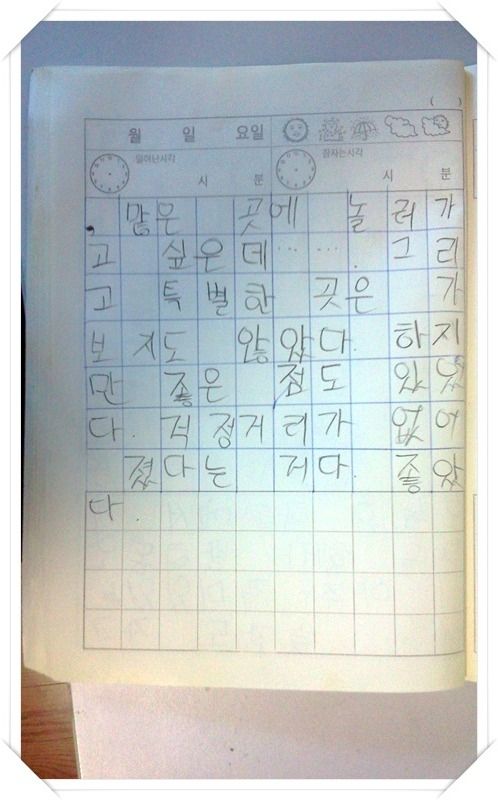 ( )
월 일 요일
일어난시각 시 분 잠자는시각 시 분
, 많은 곳에 놀러가
고 싶은데……. 그리
고 특별한 곳은 가
보지도 않았다. 하지
만 좋은 점도 있었
다. 걱정거리가 없어
졌다는 거다. 좋았
다.